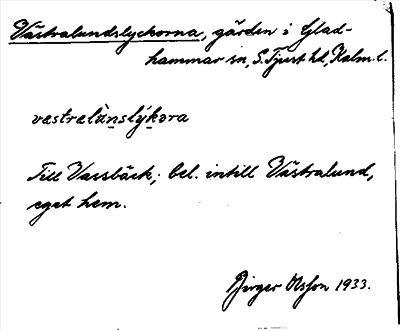 Västralundslyckorna, gården i Glad-
hammar sn, S. Tjust hd, Kalm. l.
væstrelùnslýkora
Till Vassbäck; bel. intill Västralund,
eget hem.
Birger Olsson 1933.